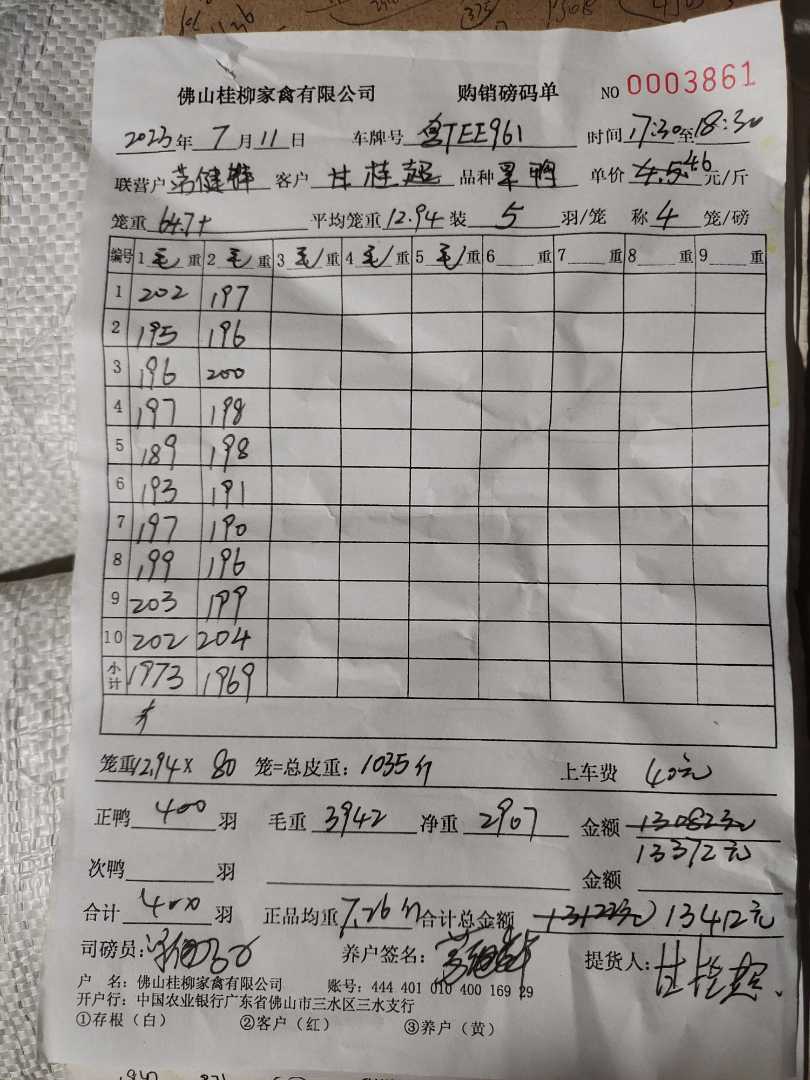 佛山桂柳家禽有限公司 购销磅码单 NO 0003861
2023年 7月 11日 车牌号 TEE961 时间 17:30至18:30
联营户 健 客户 甘桂超 品种 鸭 单价 4.5 4.6 元/斤
笼重 647 平均笼重 12.94 装 5 羽/笼 称 4 笼/磅
编号 1毛重 2毛重 3毛重 4毛重 5毛重 6 重 7 重 8 重 9 重
1 202 197
2 195 196
3 196 200
4 197 198
5 189 198
6 193 191
7 197 190
8 199 196
9 203 199
10 202 204
小计 1973 1969
笼重12.94 X 80 笼=总皮重: 1035斤 上车费 40元
正鸭 400 羽 毛重 3942 净重 2907 金额 13082元
13372元
次鸭 羽 金额
合计 400 羽 正品均重 7.26斤 合计总金额 13122元 13412元
司磅员: 养户签名: 提货人: 甘桂超
户 名: 佛山桂柳家禽有限公司 账号: 444 401 010 400 169 29
开户行: 中国农业银行广东省佛山市三水区三水支行
①存根(白) ②客户(红) ③养户(黄)